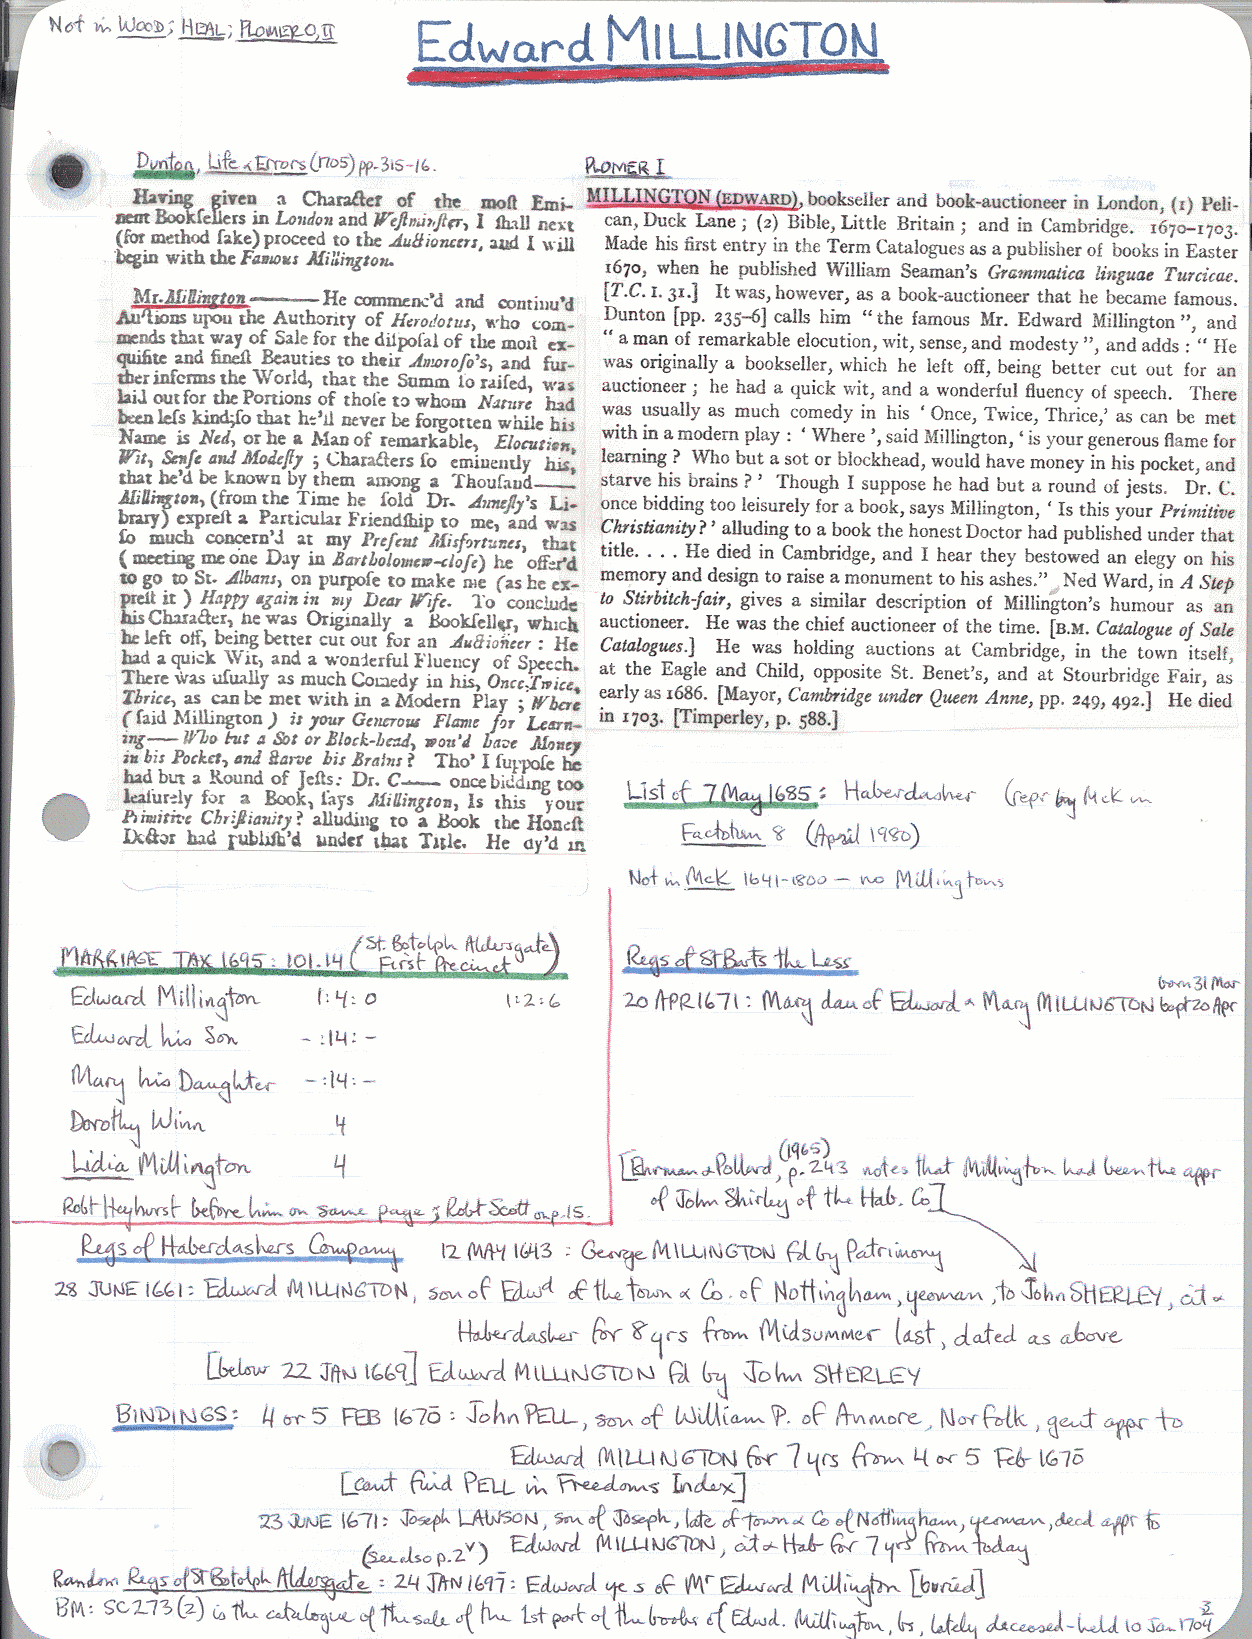 Not in WOOD; HEAL; PLOMER O, II
Edward MILLINGTON
Dunton, Life & Errors (1705) pp. 315-16.
Having given a Character of the moſt Emi-
nent Bookſellers in London and Weſtminſter, I ſhall next
(for method ſake) proceed to the Auctioneers, and I will
begin with the Famous Millington.
Mr. Millington —— He commenc'd and continu'd
Auctions upon the Authority of Herodotus, who com-
mends that way of Sale for the diſpoſal of the moſt ex-
quiſite and fineſt Beauties to their Amoroſo's, and fur-
ther informs the World, that the Summ ſo raiſed, was
laid out for the Portions of thoſe to whom Nature had
been leſs kind; ſo that he'll never be forgotten while his
Name is Ned, or he a Man of remarkable, Elocution,
Wit, Senſe and Modeſty; Characters ſo eminently his,
that he'd be known by them among a Thouſand——
Millington, (from the Time he ſold Dr. Anneſly's Li-
brary) expreſt a Particular Friendſhip to me, and was
ſo much concern'd at my Preſent Misfortunes, that
(meeting me one Day in Bartholomew-cloſe) he offer'd
to go to St. Albans, on purpoſe to make me (as he ex-
preſt it) Happy again in my Dear Wife. To conclude
his Character, he was Originally a Bookſeller, which
he left off, being better cut out for an Auctioneer: He
had a quick Wit, and a wonderful Fluency of Speech.
There was uſually as much Comedy in his, Once, Twice,
Thrice, as can be met with in a Modern Play; Where
(ſaid Millington) is your Generous Flame for Learn-
ing—— Who but a Sot or Block-head, wou'd have Money
in his Pocket, and ſtarve his Brains? Tho' I ſuppoſe he
had but a Round of Jeſts: Dr. C—— once bidding too
leaſurely for a Book, ſays Millington, Is this your
Primitive Chriſtianity? alluding to a Book the Honeſt
Doctor had publiſh'd under that Title. He dy'd in
PLOMER I
MILLINGTON (EDWARD), bookseller and book-auctioneer in London, (1) Peli-
can, Duck Lane; (2) Bible, Little Britain; and in Cambridge. 1670-1703.
Made his first entry in the Term Catalogues as a publisher of books in Easter
1670, when he published William Seaman's Grammatica linguae Turcicae.
[T.C. I. 31.] It was, however, as a book-auctioneer that he became famous.
Dunton [pp. 235-6] calls him "the famous Mr. Edward Millington", and
"a man of remarkable elocution, wit, sense, and modesty", and adds: "He
was originally a bookseller, which he left off, being better cut out for an
auctioneer; he had a quick wit, and a wonderful fluency of speech. There
was usually as much comedy in his 'Once, Twice, Thrice,' as can be met
with in a modern play: 'Where', said Millington, 'is your generous flame for
learning? Who but a sot or blockhead, would have money in his pocket, and
starve his brains?' Though I suppose he had but a round of jests. Dr. C.
once bidding too leisurely for a book, says Millington, 'Is this your Primitive
Christianity?' alluding to a book the honest Doctor had published under that
title. . . . He died in Cambridge, and I hear they bestowed an elegy on his
memory and design to raise a monument to his ashes." Ned Ward, in A Step
to Stirbitch-fair, gives a similar description of Millington's humour as an
auctioneer. He was the chief auctioneer of the time. [B.M. Catalogue of Sale
Catalogues.] He was holding auctions at Cambridge, in the town itself,
at the Eagle and Child, opposite St. Benet's, and at Stourbridge Fair, as
early as 1686. [Mayor, Cambridge under Queen Anne, pp. 249, 492.] He died
in 1703. [Timperley, p. 588.]
List of 7 May 1685: Haberdasher (repr by McK in
Factotum 8 (April 1980)
Not in McK 1641-1800 — no Millingtons
MARRIAGE TAX 1695: 101.14 (St. Botolph Aldersgate First Precinct)
Edward Millington 1:4:0 1:2:6
Edward his Son -:14:-
Mary his Daughter -:14:-
Dorothy Winn 4
Lidia Millington 4
Robt Heyhurst before him on same page; Robt Scott on p. 15.
Regs of St Barts the Less
20 APR 1671: Mary dau of Edward & Mary MILLINGTON born 31 Mar bapt 20 Apr
[Ehrman & Pollard, (1965) p. 243 notes that Millington had been the appr
of John Shirley of the Hab. Co]
Regs of Haberdashers Company 12 MAY 1643: George MILLINGTON fd by Patrimony
28 JUNE 1661: Edward MILLINGTON, son of Edwd of the town & Co. of Nottingham, yeoman, to John SHERLEY, cit &
Haberdasher for 8 yrs from Midsummer last, dated as above
[below 22 JAN 1669] Edward MILLINGTON fd by John SHERLEY
BINDINGS: 4 or 5 FEB 1670: John PELL, son of William P. of Anmore, Norfolk, gent appr to
Edward MILLINGTON for 7 yrs from 4 or 5 Feb 1670
[cant find PELL in Freedoms Index]
23 JUNE 1671: Joseph LAWSON, son of Joseph, late of town & Co of Nottingham, yeoman, decd appr to
(see also p. 2v) Edward MILLINGTON, cit & Hab for 7 yrs from today
Random Regs of St Botolph Aldersgate: 24 JAN 1697: Edward ye s of Mr Edward Millington [buried]
BM: SC273(2) is the catalogue of the sale of the 1st part of the books of Edwd. Millington, bs, lately deceased - held 10 Jan 1703/4